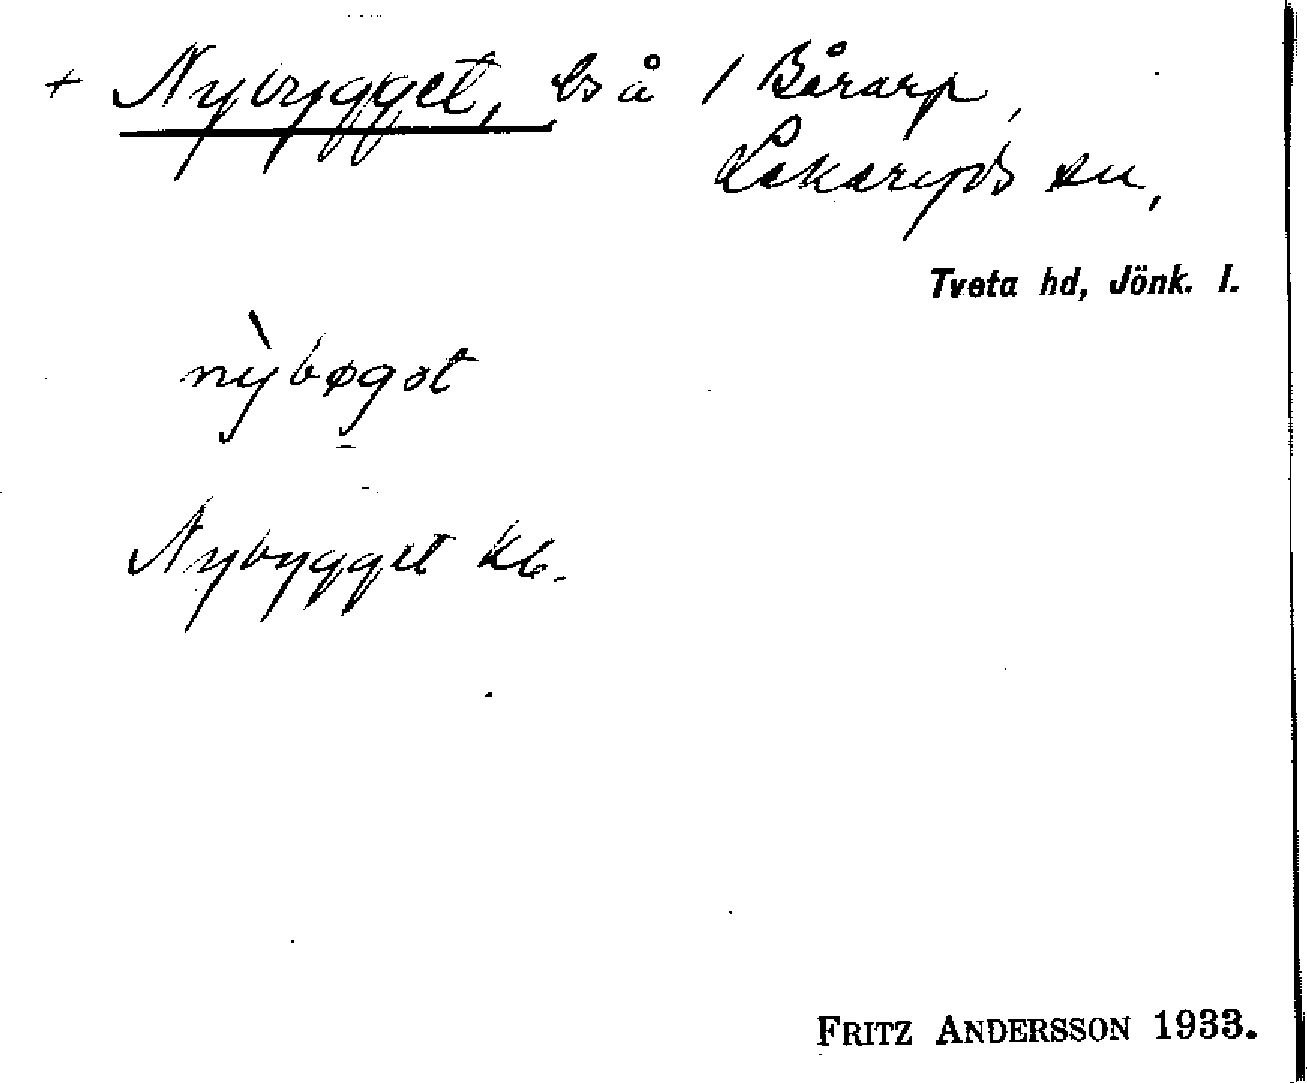 + Nybygget, bs å 1 Bårarp,
Lekeryds sn,
Tveta hd, Jönk. l.
nỳbøgət
Nybygget kb.
FRITZ ANDERSSON 1933.